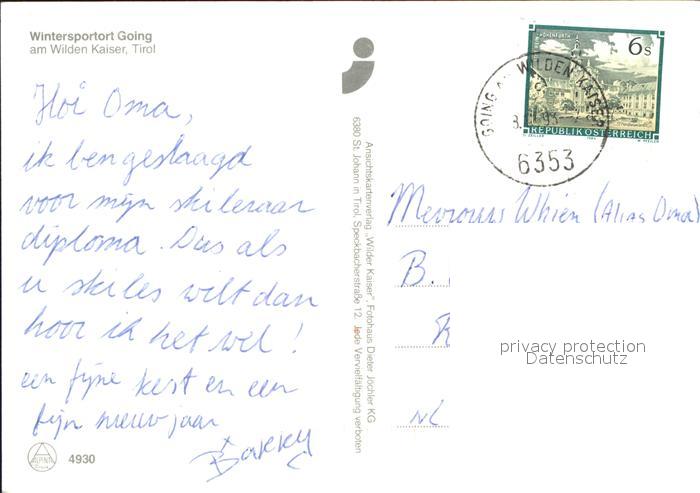 Wintersportort Going
am Wilden Kaiser, Tirol
Hoi Oma,
ik ben geslaagd
voor mijn skileraar
diploma. Dus als
u skiles wilt dan
hoor ik het wel!
een fijne kerst en een
fijn nieuwjaar
Barry
4930
Ansichtskartenverlag „Wilder Kaiser“, Fotohaus Dieter Jöchler KG
6380 St. Johann in Tirol, Speckbacherstraße 12. Jede Vervielfältigung verboten
6s
REPUBLIK ÖSTERREICH
GOING AM WILDEN KAISER
6353
(Alias Oma)
B.
NL
privacy protection
Datenschutz